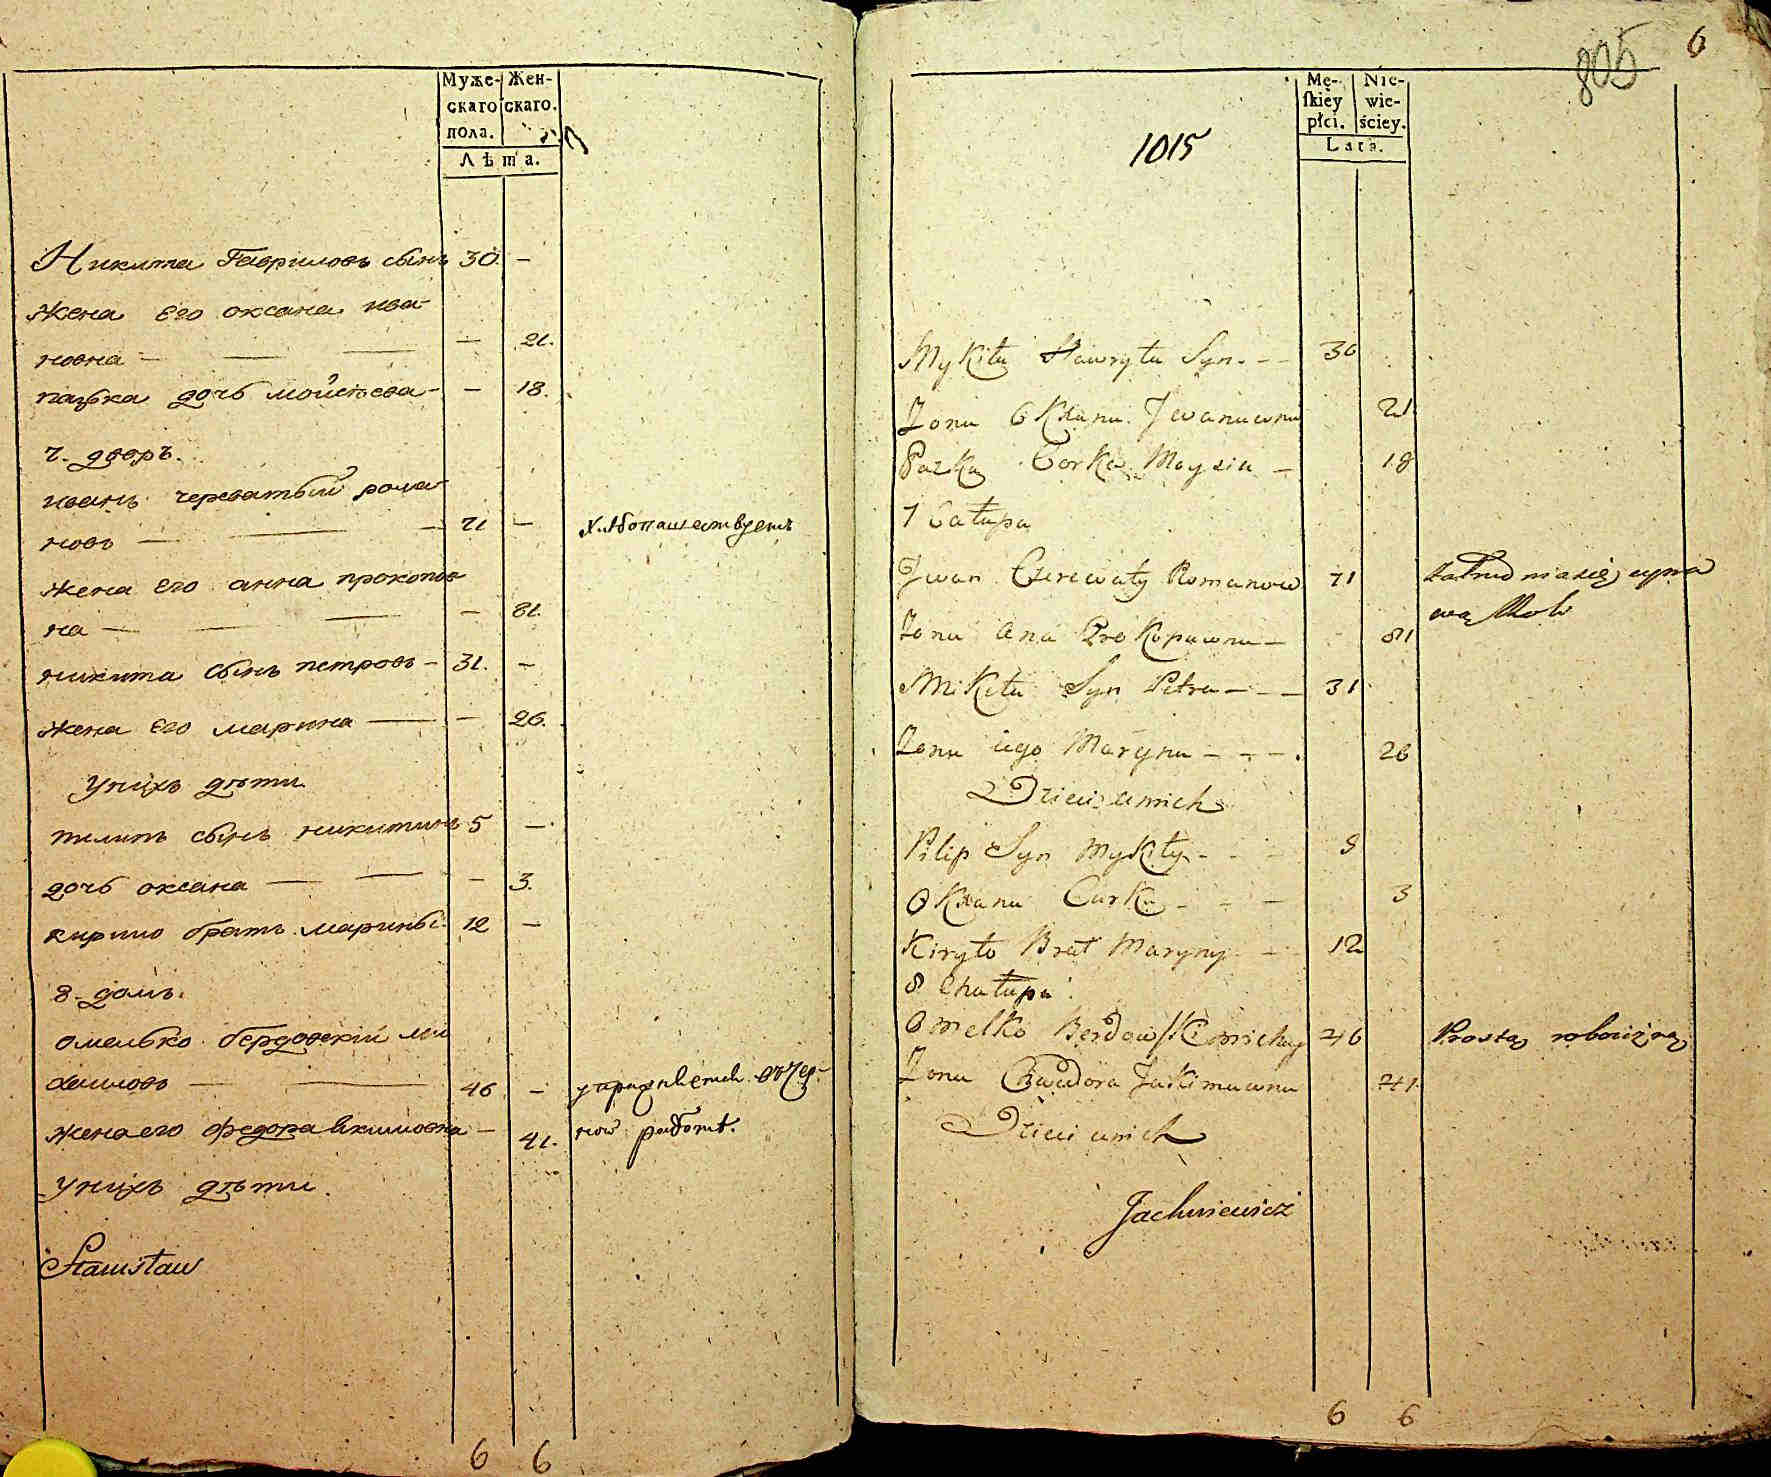 Муже- Жен-
скаго скаго.
пола.
Лѣта.
Никита Гавриловъ сынъ 30 —
жена Его оксана ива-
новна — — — — 21.
пазька дочь мойсѣева — — 18.
7. дворъ.
иванъ череватый рома-
новъ — — — 71 — хлѣбопашествуетъ
жена его анна прокопов
на — — — — 81.
никита сынъ петровъ — 31. —
жена Его марина — — 26.
Унихъ дѣти
пилипъ сынъ никитинъ 5 —
дочь оксана — — — 3.
кирило братъ марины 12 —
8 домъ.
омелько бердовскiй ми
хаиловъ — — 46 —
жена его федора Якимовна — 41.
упражняется въ чер-
ной работѣ.
унихъ дѣти.
Stanisław
6 6
805 6
1015
Mę- Nie-
skiey wie-
płci. ściey.
Lata.
Mykita Hawryła Syn. — — 30
Zona Oxana Iwanuwna 21.
Pazka Corka Moysia — 18
7 Całupa
Iwan Czerewaty Romanow 71
Zona Ana Prokopuwna — 81
Mikita Syn Petra — — — 31
Zona iego Maryna — — — 26
Dzieci unich
Pilip Syn Mykity — — — 5
Oxana Curka — — — 3
Kiryło Brat Maryny — 12
8 Chałupa
Omelko Berdowski 46 Prostą robocizną
Zona Chwedora Jakimuwna 41
Dzieci unich
Jachniewicz
6 6